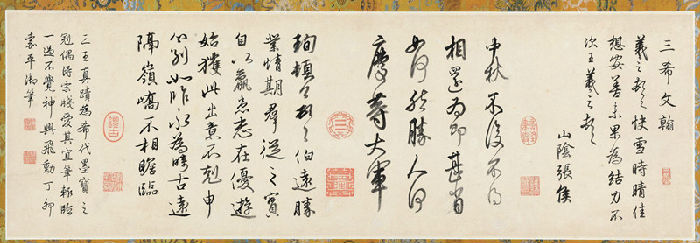 三希文翰
羲之頓首快雪時晴佳
想安善未果為結力不
次王羲之頓首
山陰張侯
中秋不復不得
相還為即甚省
如何然勝人何
慶等大軍
珣頓首頓首伯遠勝
業情期群從之寶
自以羸患志在優遊
始獲此出意不剋申
分別如昨永為疇古遠
隔嶺嶠不相瞻臨
三王真蹟為希代墨寶之
冠偶牋愛其宜筆輒臨
一過不覺神興飛動丁卯
嘉平御筆